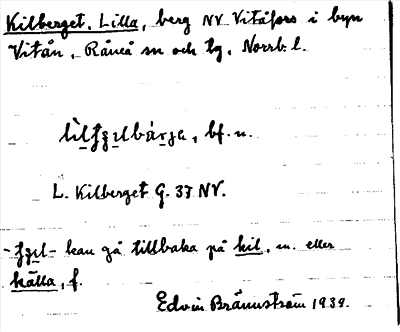 Kilberget, Lilla, berg NV Vitåfors i byn
Vitån, Råneå sn och tg, Norrb. l.
bf. n.
L. Kilberget G. 37 NV.
kan gå tillbaka på kil, m. eller
källa, f.
Edvin Brännström 1939.